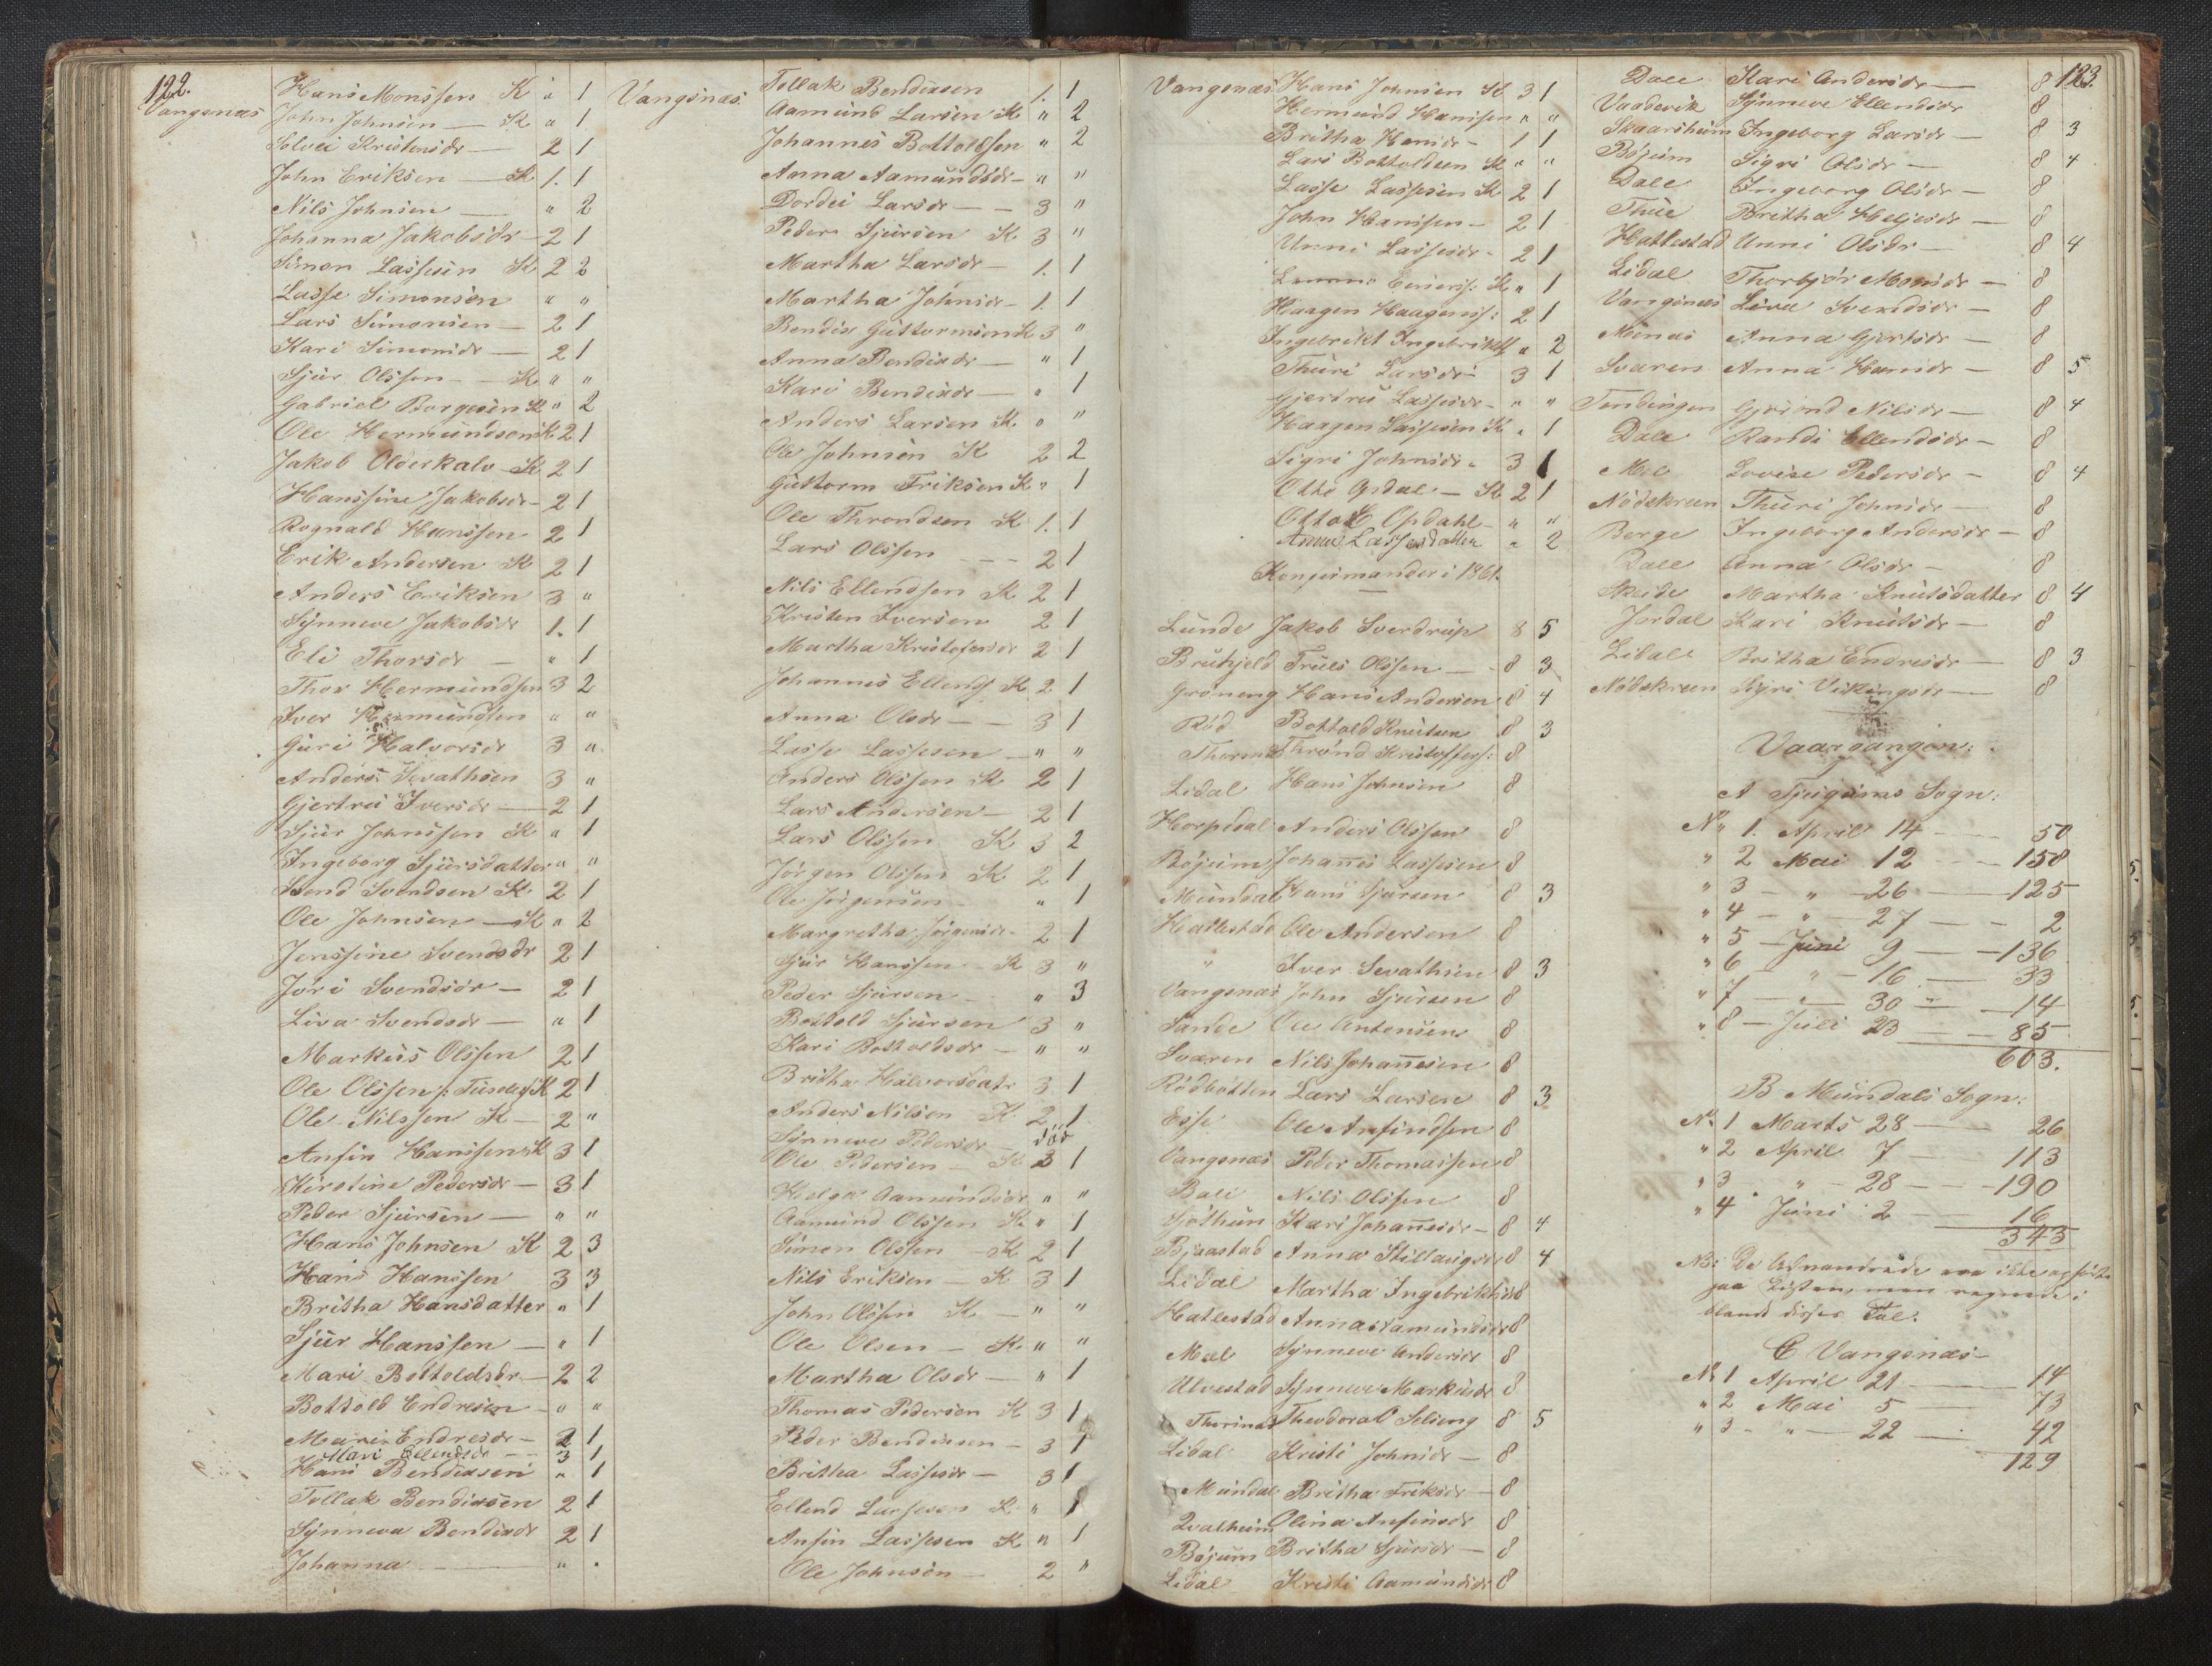 122.
Vangsnæs Hans Monssen K " 1
John Johnsen — K " 1
Sølvei Kristensdr — 2 1
John Eriksen — K 1. 1
Nils Johnsen — " 2
Johanna Jakobsdr — 2 1
Simon Lassesen K 2 2
Lasse Simonsen " "
Lars Simonsen — 2 1
Kari Simonsdr — 2 1
Sjur Olssen — K " "
Gabriel Borgesen K " 2
Ole Hermundsen K 2 1
Jakob Olderkalv K 2 1
Hanssine Jakobsdr — 2 1
Rognald Hanssen 2 1
Erik Andersen K 2 1
Anders Eriksen 3 "
Synneve Jakobsdr 1. 1
Eli Thorsdr — " 1
Thor Hermundsen 3 2
Iver Hermundsen " "
Guri Halvorsdr 3 "
Anders Sevathsen 3 "
Gjertrud Iversdr — 2 1
Sjur Johnssen K " 1
Ingeborg Sjursdatter " "
Svend Svendsen K 2 1
Ole Johnsen — K " 2
Jenssine Svendsdr 2 1
Jori Svendsdr — 2 1
Liva Svendsdr — " 1
Markus Olssen 2 1
Ole Olssen K 2 1
Ole Nilssen K — 2 "
Anfin Hanssen K 3 1
Kirstine Pedersdr — 3 1
Peder Sjursen — " "
Hans Johnsen K 2 3
Hans Hanssen 3 3
Britha Hansdatter " 1
Sjur Hanssen — " 1
Mari Bottoldsdr — 2 2
Bottold Endresen — " "
Mari Endresdr — 2 1
Mari Ellendsdr — 3 1
Hans Bendixsen " 1
Tollak Bendixsen 2 1
Synneva Bendixdr 2 1
Johanna — " "
Vangsnæs. Tollak Bendixsen 1. 1
Aamund Larsen K " 2
Johannes Bottoldsen " 2
Anna Aamundsdr — " "
Dordei Larsdr — — 3 "
Peder Sjursen K. 3 "
Martha Larsdr — 1. 1
Martha Johnsdr — 1. 1
Bendix Guttormsen K 3 "
Anna Bendixdr — " 1
Kari Bendixdr — " 1
Anders Larsen K. " "
Ole Johnsen K 2 2
Guttorm Eriksen K " 1
Ole Throndsen K 1. 1
Lars Olssen — — 2 1
Nils Ellendsen K 2 1
Kristen Iversen 2 1
Martha Kristofersdr 2 1
Johannes Ellends K 2 1
Anna Olsdr — — 3 1
Lasse Lassesen — " "
Anders Olssen K 2 1
Lars Andersen — 2 1
Lars Olssen K 3 2
Jørgen Olssen K 2 1
Ole Jørgensen — " 1
Margretha Jørgensdr — 2 1
Sjur Hanssen — K 3 "
Peder Sjursen — " 3
Bottold Sjursen 3 "
Kari Bottoldsdr — " "
Britha Halvorsdatr 3 1
Anders Nilsen K 2 1
Synneve Pedersdr — død
Ole Pedersen — K 3 1
Helga Aamundsdr " "
Aamund Olssen K " 1
Simon Olssen — K 2 1
Nils Eriksen — K 3 1
John Olssen K — " "
Ole Olsen — K " "
Martha Olsdr — " 1
Thomas Pedersen K 3 1
Peder Bendixsen — 3 1
Britha Lassesdr — 3 1
Ellend Lassesen K " 1
Anfin Lassesen K " 1
Ole Johnsen — 2 "
Vangsnæs Hans Johnsen K 3 1
Hermund Hanssen " "
Britha Hansdr — 1 1
Lars Bottoldsen K " "
Lasse Lassesen K 2 1
John Hanssen — 2 1
Unni Lassesdr — 2 1
Einers: K " 1
Haagen Haagens: 2 1
Ingebrikt Ingebrikts " 2
Thuri Larsdr — 3 1
Gjertrud Lassesdr — " "
Haagen Lassesen K " 1
Sigri Johnsdr " 3 1
Otto Opdal — K 2 1
Otto C Opdahl — " "
Anna Lassesdatter " 2
Konfirmander i 1861.
Lunde Jakob Sverdrup 8 5
Bruhjeld Truls Olssen — 8 3
Grøneng Hans Andersen 8 4
Rød Bottold Knutsen 8 3
Thrond Kristoffers: 8
Lidal Hans Johnsen 8
Horpedal Anders Olssen 8
Bøjum Johannes Lassesen 8
Mundal Hans Sjursen 8 3
Hatlestad Ole Andersen 8
" Iver Sevathsen 8 3
Vangsnæs John Sjursen 8
Sande Ole Antonsen 8
Sværen Nils Johannesen 8
Rødbotten Lars Larsen 8 3
Esse Ole Anfindsen 8
Vangsnæs Peder Thomassen 8
Bale Nils Olssen 8
Sjøthun Kari Johannesdr — 8 4
Bjaastad Anna Stillaugsdr 8 4
Lidal Martha Ingebriktsdr 8
Hatlestad Anna Aamundsdr 8
Mæl Synneve Andersdr 8
Ulvestad Synneve Markusdr 8
Theodora Selseng 8 5
Lidal Kristi Johnsdr — 8
Mundal Britha Eriksdr — 8
Qvalheim Olina Anfinsdr 8
Bøjum Britha Sjursdr — 8
Lidal Kristi Aamundsdr 8
123.
Dale Kari Andersdr — 8
Vaadevik Synneve Ellendsdr 8
Skaarsheim Ingeborg Larsdr — 8 3
Bøjum Sigri Olsdr — 8 4
Dale Ingeborg Olsdr — 8
Thue Britha Heljesdr — 8
Hatlestad Unni Olsdr — 8 4
Lidal Thorbjør Monsdr — 8
Vangsnæs Liva Svendsdr — 8
Menæs Anna Gjertsdr — 8
Sværen Anna Hansdr — 8 5
Tendingen Gjørond Nilsdr — 8 4
Dale Randi Ellendsdr — 8
Mæl Lovise Pedersdr — 8 4
Nødskreen Thuri Johnsdr — 8
Berge Ingeborg Andersdr — 8
Dale Anna Olsdr — 8
Skide Martha Knutsdatter 8 4
Jordal Kari Knutsdr — 8
Lidal Britha Endresdr — 8 3
Nødskreen Sigri Vikingsdr — 8
Vaargangen:
A Tjugums Sogn:
No 1. April 14 — 50
" 2 Mai 12 — 158
" 3 — " — 26 — 125
" 4 — " — 27 — 2
" 5 — Juni 9 — 136
" 6 — " — 16 — 33
" 7 — " — 30 — 14
" 8 — Juli 20 — 85
603.
B Mundals Sogn:
No 1 Marts 28 — 26
" 2 April 7 — 113
" 3 " — 28 — 190
" 4 Juni 2 — 16
343
NB: De Udvandrede ere ikke opførte
paa Listen, men regnede i
blandt disses Tal.
C Vangsnæs —
No 1 April 21 — 14
" 2 Mai 5 — 73
" 3 — " — 22 — 42
129